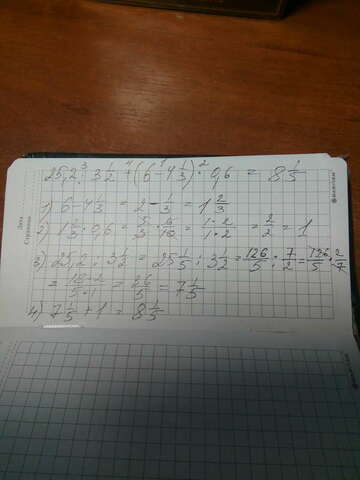 25,2 : 3 1/2 + (6 - 4 1/3) · 0,6 = 8 1/5
1) 6 - 4 1/3 = 2 - 1/3 = 1 2/3
2) 1 2/3 · 0,6 = 5/3 · 6/10 = 1·2/1·2 = 2/2 = 1
3) 25,2 : 3 1/2 = 25 1/5 : 3 1/2 = 126/5 : 7/2 = 126/5 · 2/7
= 18·2/5·1 = 36/5 = 7 1/5
4) 7 1/5 + 1 = 8 1/5